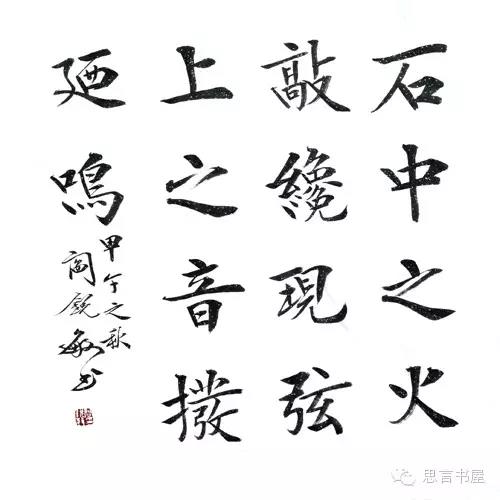 石中之火
敲纔現弦
上之音撥
廼鳴
甲午之秋
閻銳敏书
思言书屋